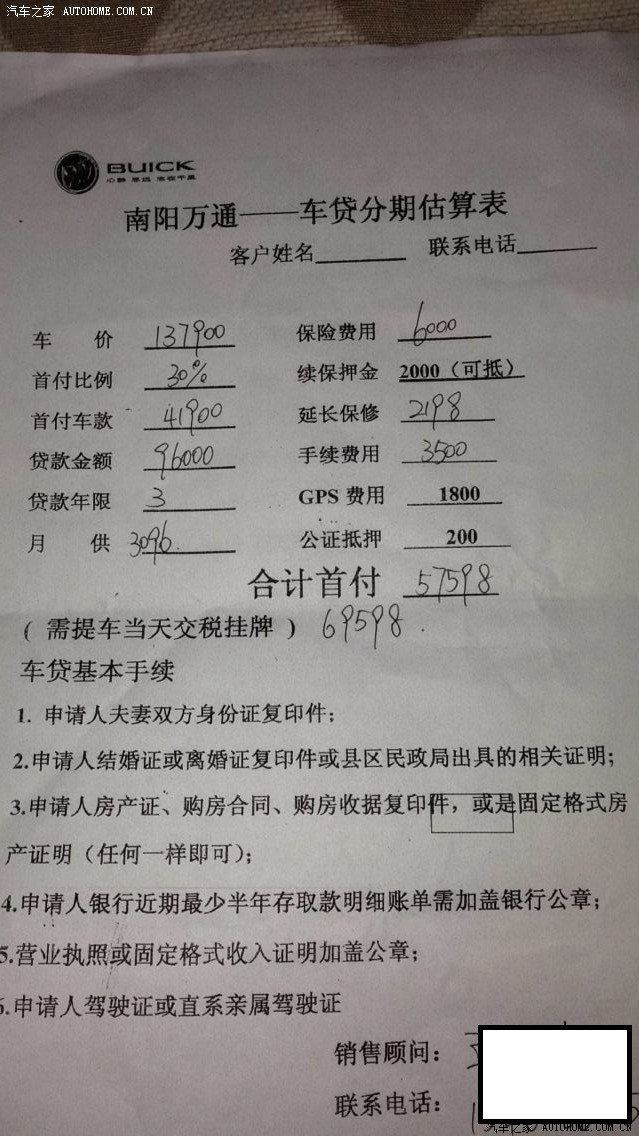 汽车之家 AUTOHOME.COM.CN
BUICK
心静 思远 志在千里
南阳万通——车贷分期估算表
客户姓名 联系电话
车 价 137900 保险费用 6000
首付比例 30% 续保押金 2000（可抵）
首付车款 41900 延长保修 2198
贷款金额 96000 手续费用 3500
贷款年限 3 GPS 费用 1800
月 供 3096. 公证抵押 200
合计首付 57598
( 需提车当天交税挂牌 ) 69598.
车贷基本手续
1. 申请人夫妻双方身份证复印件；
2.申请人结婚证或离婚证复印件或县区民政局出具的相关证明；
3.申请人房产证、购房合同、购房收据复印件，或是固定格式房
产证明（任何一样即可）；
4.申请人银行近期最少半年存取款明细账单需加盖银行公章；
5.营业执照或固定格式收入证明加盖公章；
6.申请人驾驶证或直系亲属驾驶证
销售顾问：
联系电话：
汽车之家 AUTOHOME.COM.CN